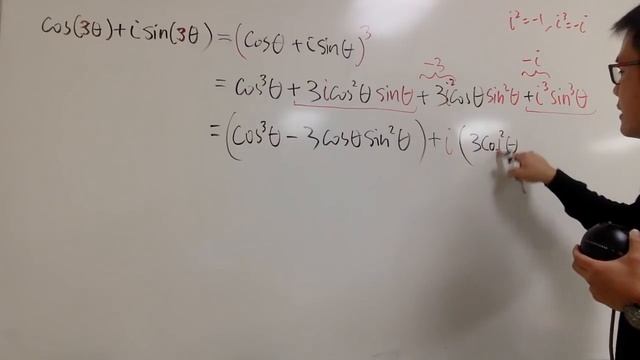 cos(3θ)+i sin(3θ) = (cosθ + i sinθ)³
i²=-1, i³=-i
-3
-i
= cos³θ + 3i cos²θ sinθ + 3i² cosθ sin²θ + i³ sin³θ
= (cos³θ - 3cosθ sin²θ) + i (3cos²θ